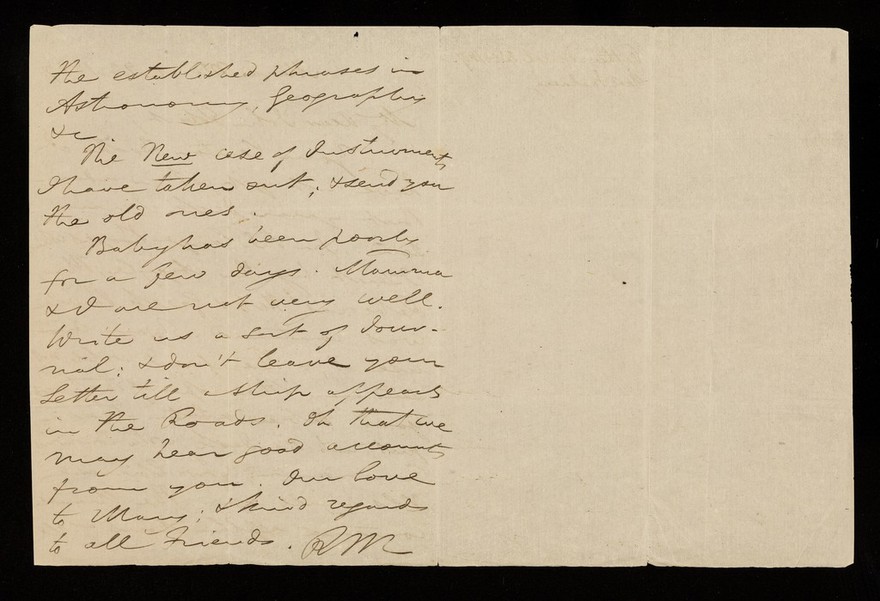 the established phrases in
Astronomy, Geography
&c
The New case of Instruments
I have taken out; & send you
the old ones.
Baby has been poorly
for a few days. Mamma
& I are not very well.
Write us a sort of Jour-
nal; & don't leave your
Letter till a Ship appears
in the Roads. Oh that we
may hear good accounts
from you. Our love
to Mary; & kind regards
to all Friends. RM